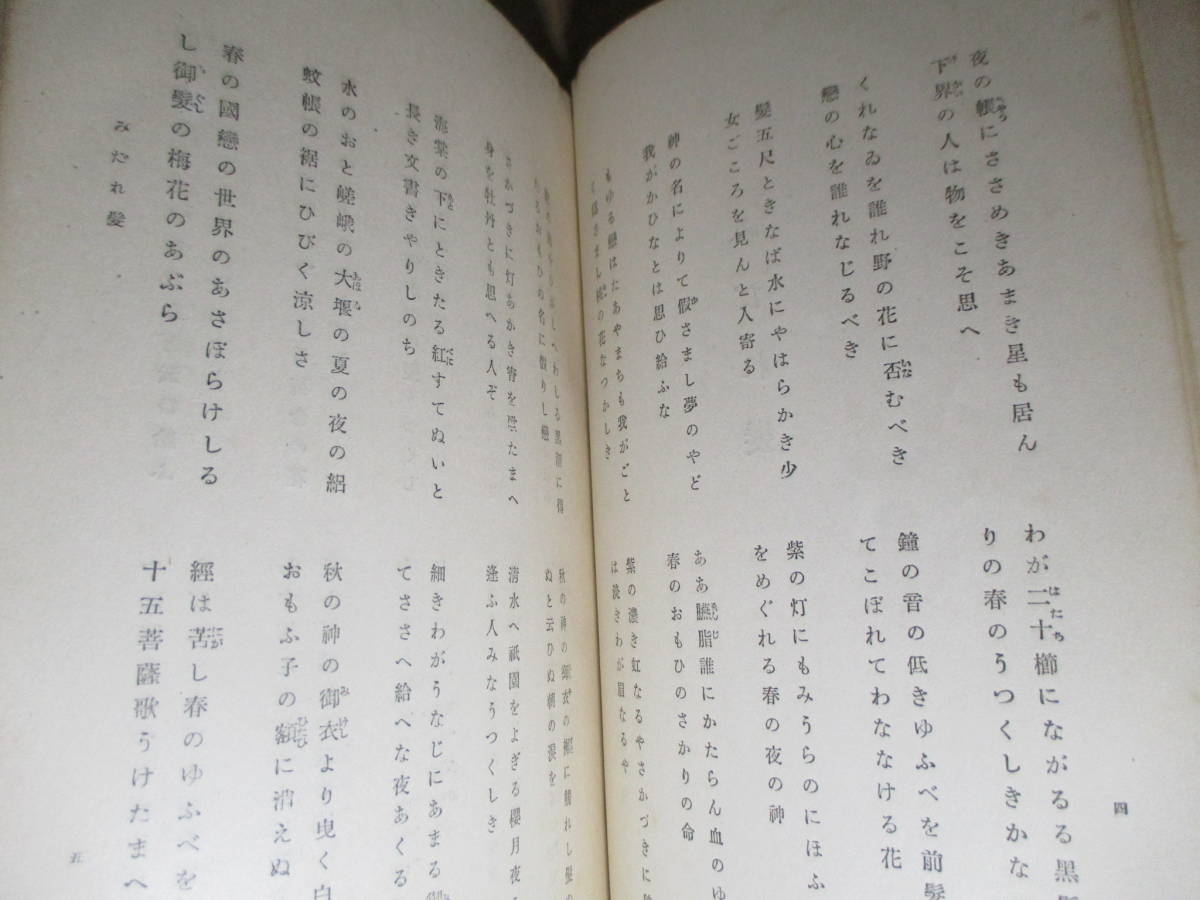 夜の帳にささめきあまき星も居ん
下界の人は物をこそ思へ
くれなゐを誰れ野の花に否むべき
戀の心を誰れなじるべき
髮五尺ときなば水にやはらかき少
女ごころを見んと人寄る
神の名によりて假さまし夢のやど
我がかひなとは思ひ給ふな
もゆる戀はたあやまちも我がごと
の花なつかしき
わが二十櫛にながるる黒
りの春のうつくしきかな
鐘の音の低きゆふべを前髮
てこぼれてわななける花
紫の灯にもみうらのにほふ
をめぐれる春の夜の神
ああ臙脂誰にかたらん血のゆ
春のおもひのさかりの命
紫の濃き虹なるやさかづきに
は淡きわが眉なるや
四
の名に似りし戀
さかづきに灯あかき宵を
たまへ
身を牡丹とも思へる人ぞ
海棠の下にときたる紅すてぬいと
長き文書きやりしのち
水のおと嵯峨の大堰の夏の夜の絽
蚊帳の裾にひびく涼しさ
春の國戀の世界のあさぼらけしる
し御髮の梅花のあぶら
みだれ髮
秋の神の御衣の
に觸れし
ぬと云ひぬ朝の涙を
清水へ祇園をよぎる櫻月夜
逢ふ人みなうつくしき
細きわがうなじにあまる御
てささへ給へな夜あくる
秋の神の御衣より曳く白
おもふ子の額に消えぬ
經は苦し春のゆふべを
十五菩薩歌うけたまへ
五